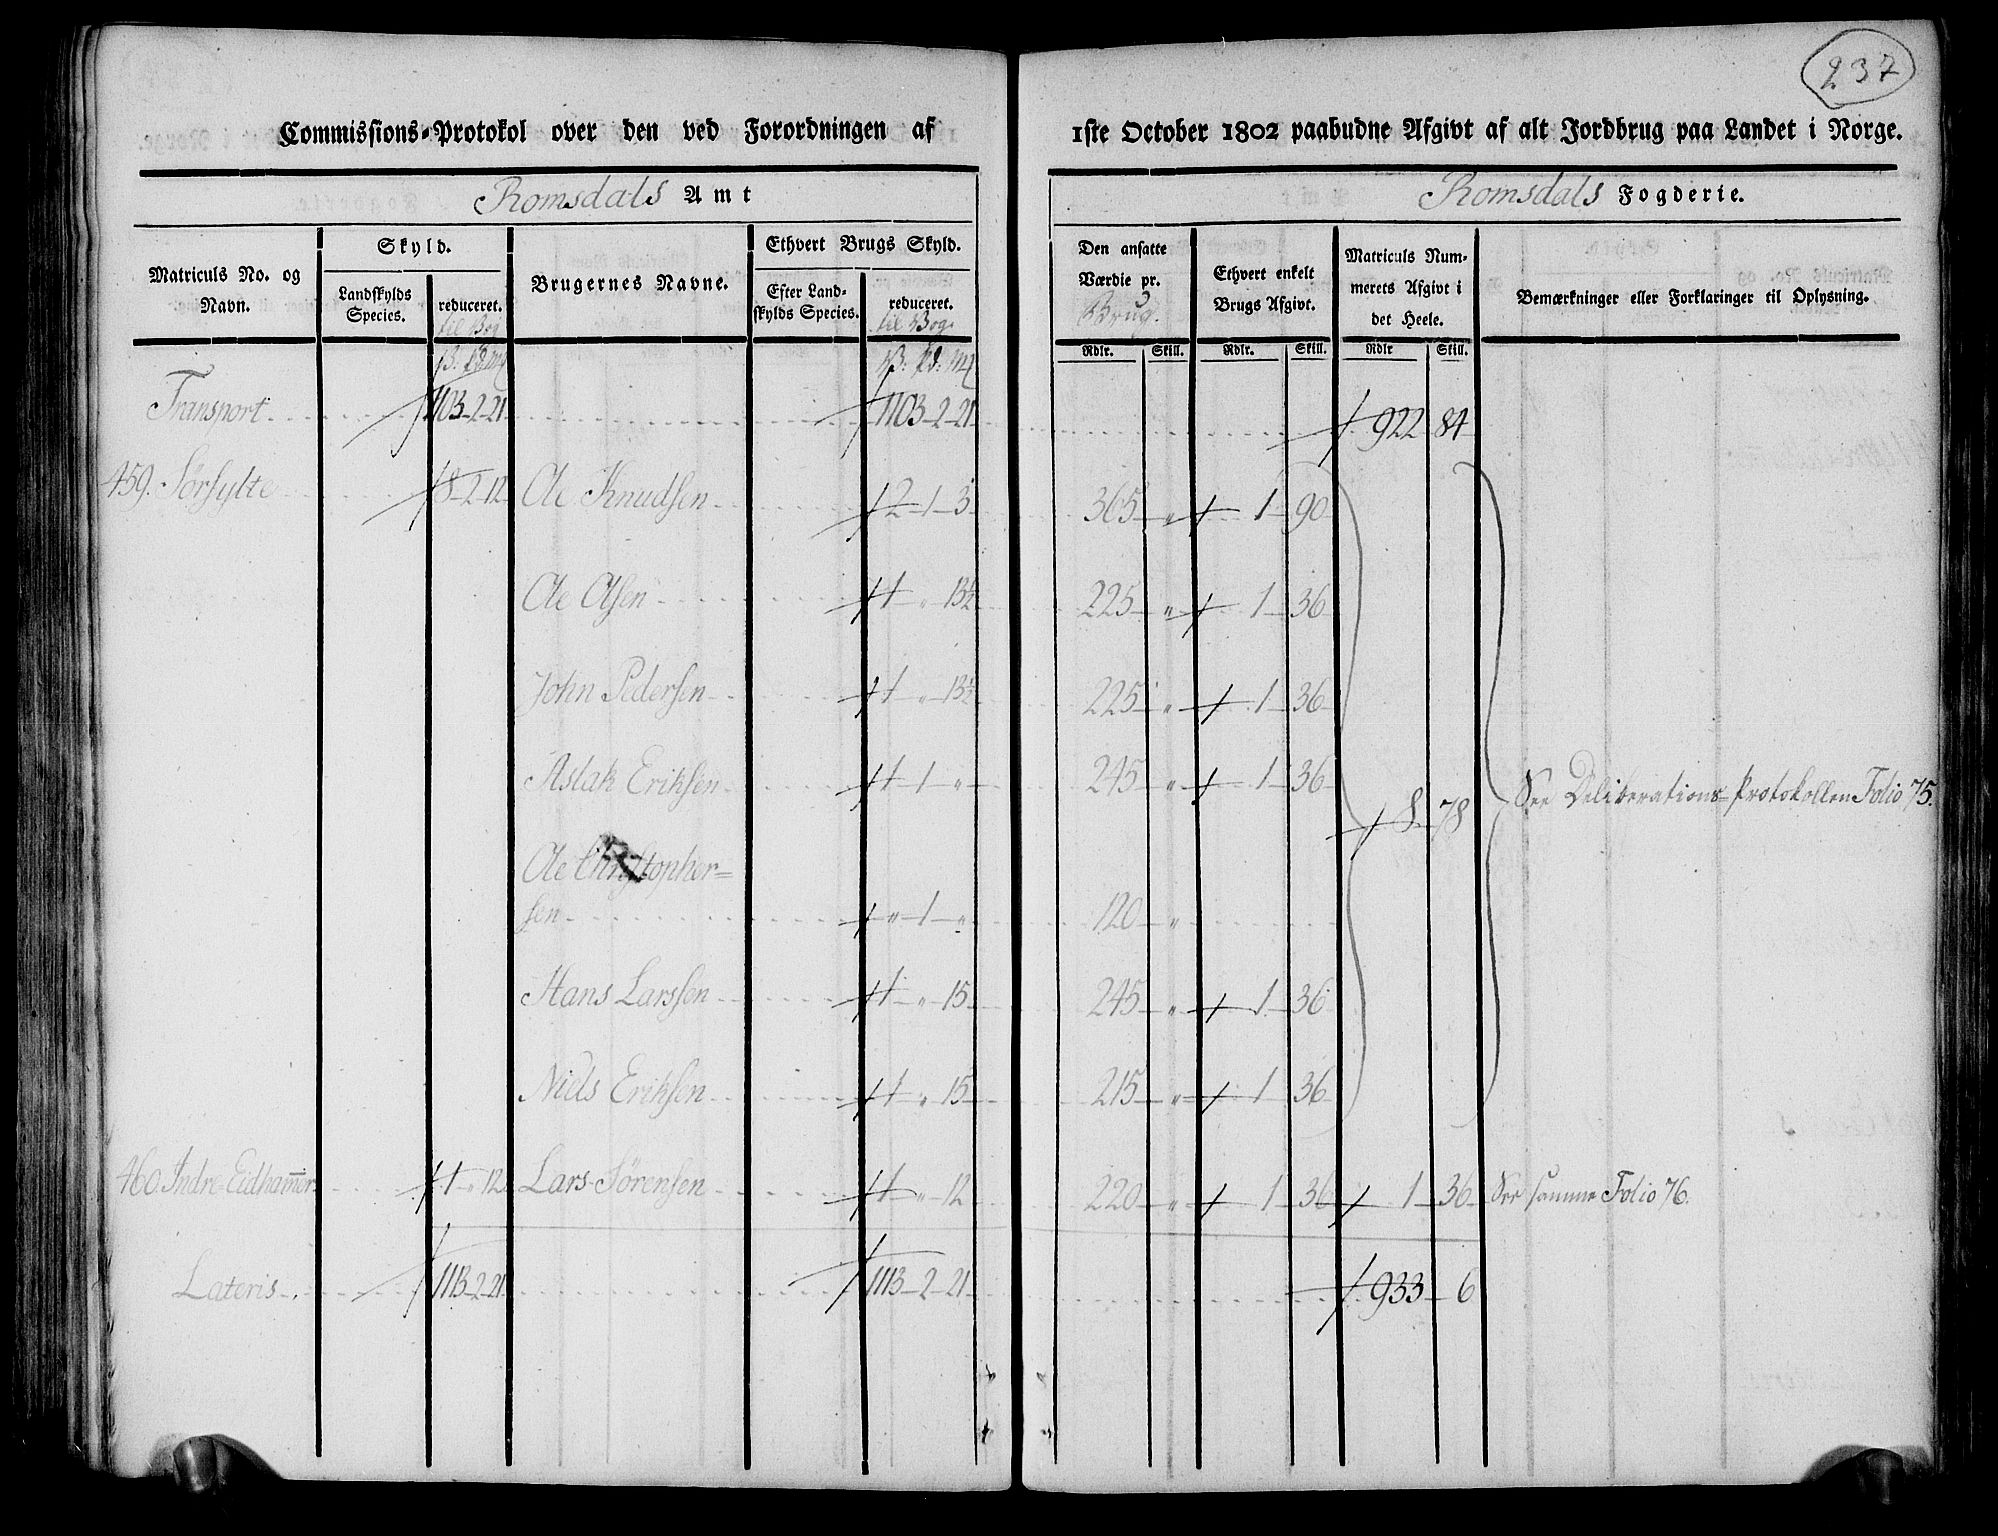 237
Commissions-Protokol over den ved Forordningen af 1ste October 1802 paabudne Afgivt af alt Jordbrug paa Landet i Norge.
Romsdals Amt
Romsdals Fogderie.
Matriculs No. og Navn.
Skyld.
Landskylds Species.
reduceret.
til Bog
Brugernes Navne.
Ethvert Brugs Skyld.
Efter Landskylds Species.
reduceret.
til Bog
Den ansatte Værdie pr.
Brug.
Ethvert enkelt Brugs Afgivt.
Matriculs Nummerets Afgivt i det Heele.
Bemærkninger eller Forklaringer til Oplysning.
Rdlr. Skill. Rdlr. Skill. Rdlr Skill.
Transport 1103-2-21 1103-2-21 922 84
459. Sørsylte 8-2-12 Ole Knudsen 2-1-3 365 " 1-90
Ole Olsen 1 " 13½ 225 " 1-36
John Pedersen 1 " 13½ 225 " 1-36
Aslak Eriksen 1-1 " 245 " 1-36
8-78 See Deliberations-Protokollen Folio 75.
Ole Christopher=
sen " 1 " 120 "
Hans Larssen 1 " 15 245 " 1-36
Niels Eriksen 1 " 15 215 " 1-36
460 Indre Eidham̅er 1 " 12 Lars Sørensen 1 " 12 220 " 1-36 1-36 See samme Folio 76.
Lateris 1113-2-21 1113-2-21 933-6